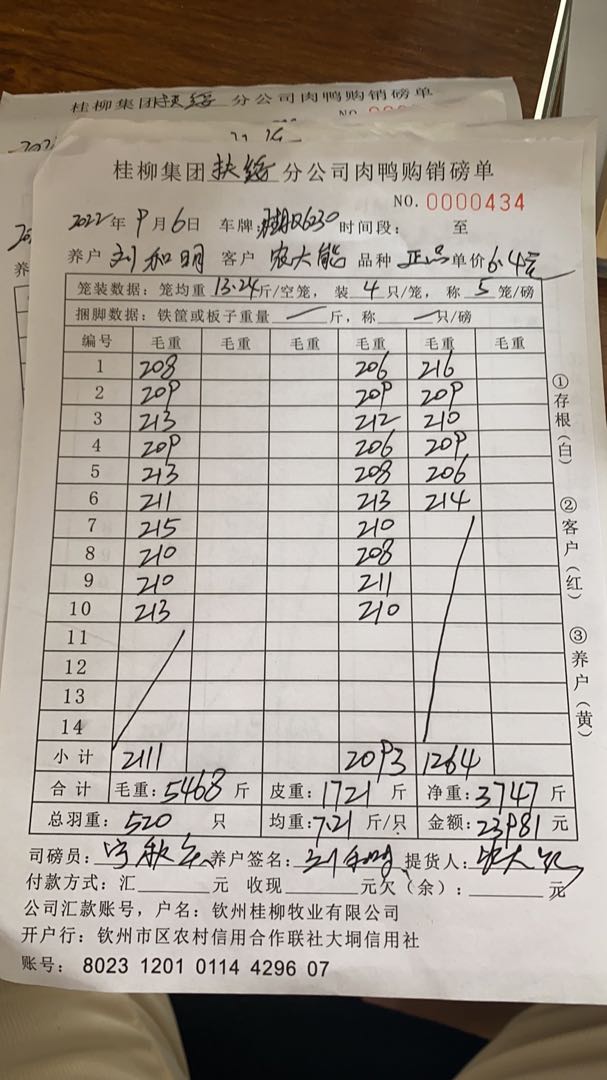 桂柳集团扶绥分公司肉鸭购销磅单
NO.
2022
养
桂柳集团扶绥分公司肉鸭购销磅单
NO. 0000434
2022年9月6日 车牌: 6230 时间段: 至
养户 刘和明 客户 农大能 品种 正品 单价6.4元
笼装数据: 笼均重 13.24斤/空笼, 装 4 只/笼, 称 5 笼/磅
捆脚数据: 铁筐或板子重量 — 斤, 称 — 只/磅
编号 毛重 毛重 毛重 毛重 毛重 毛重
1 208 206 216
2 209 209 209
3 213 212 210
4 209 206 209
5 213 208 206
6 211 213 214
7 215 210
8 210 208
9 210 211
10 213 210
11
12
13
14
小计 2111 2093 1264
合计 毛重: 5468 斤 皮重: 1721 斤 净重: 3747 斤
总羽重: 520 只 均重: 7.21 斤/只 金额: 23981 元
司磅员: 养户签名: 刘和明 提货人: 农大能
付款方式: 汇 元 收现 元欠(余): 元
公司汇款账号, 户名: 钦州桂柳牧业有限公司
开户行: 钦州市区农村信用合作联社大垌信用社
账号: 8023 1201 0114 4296 07
①存根(白)
②客户(红)
③养户(黄)